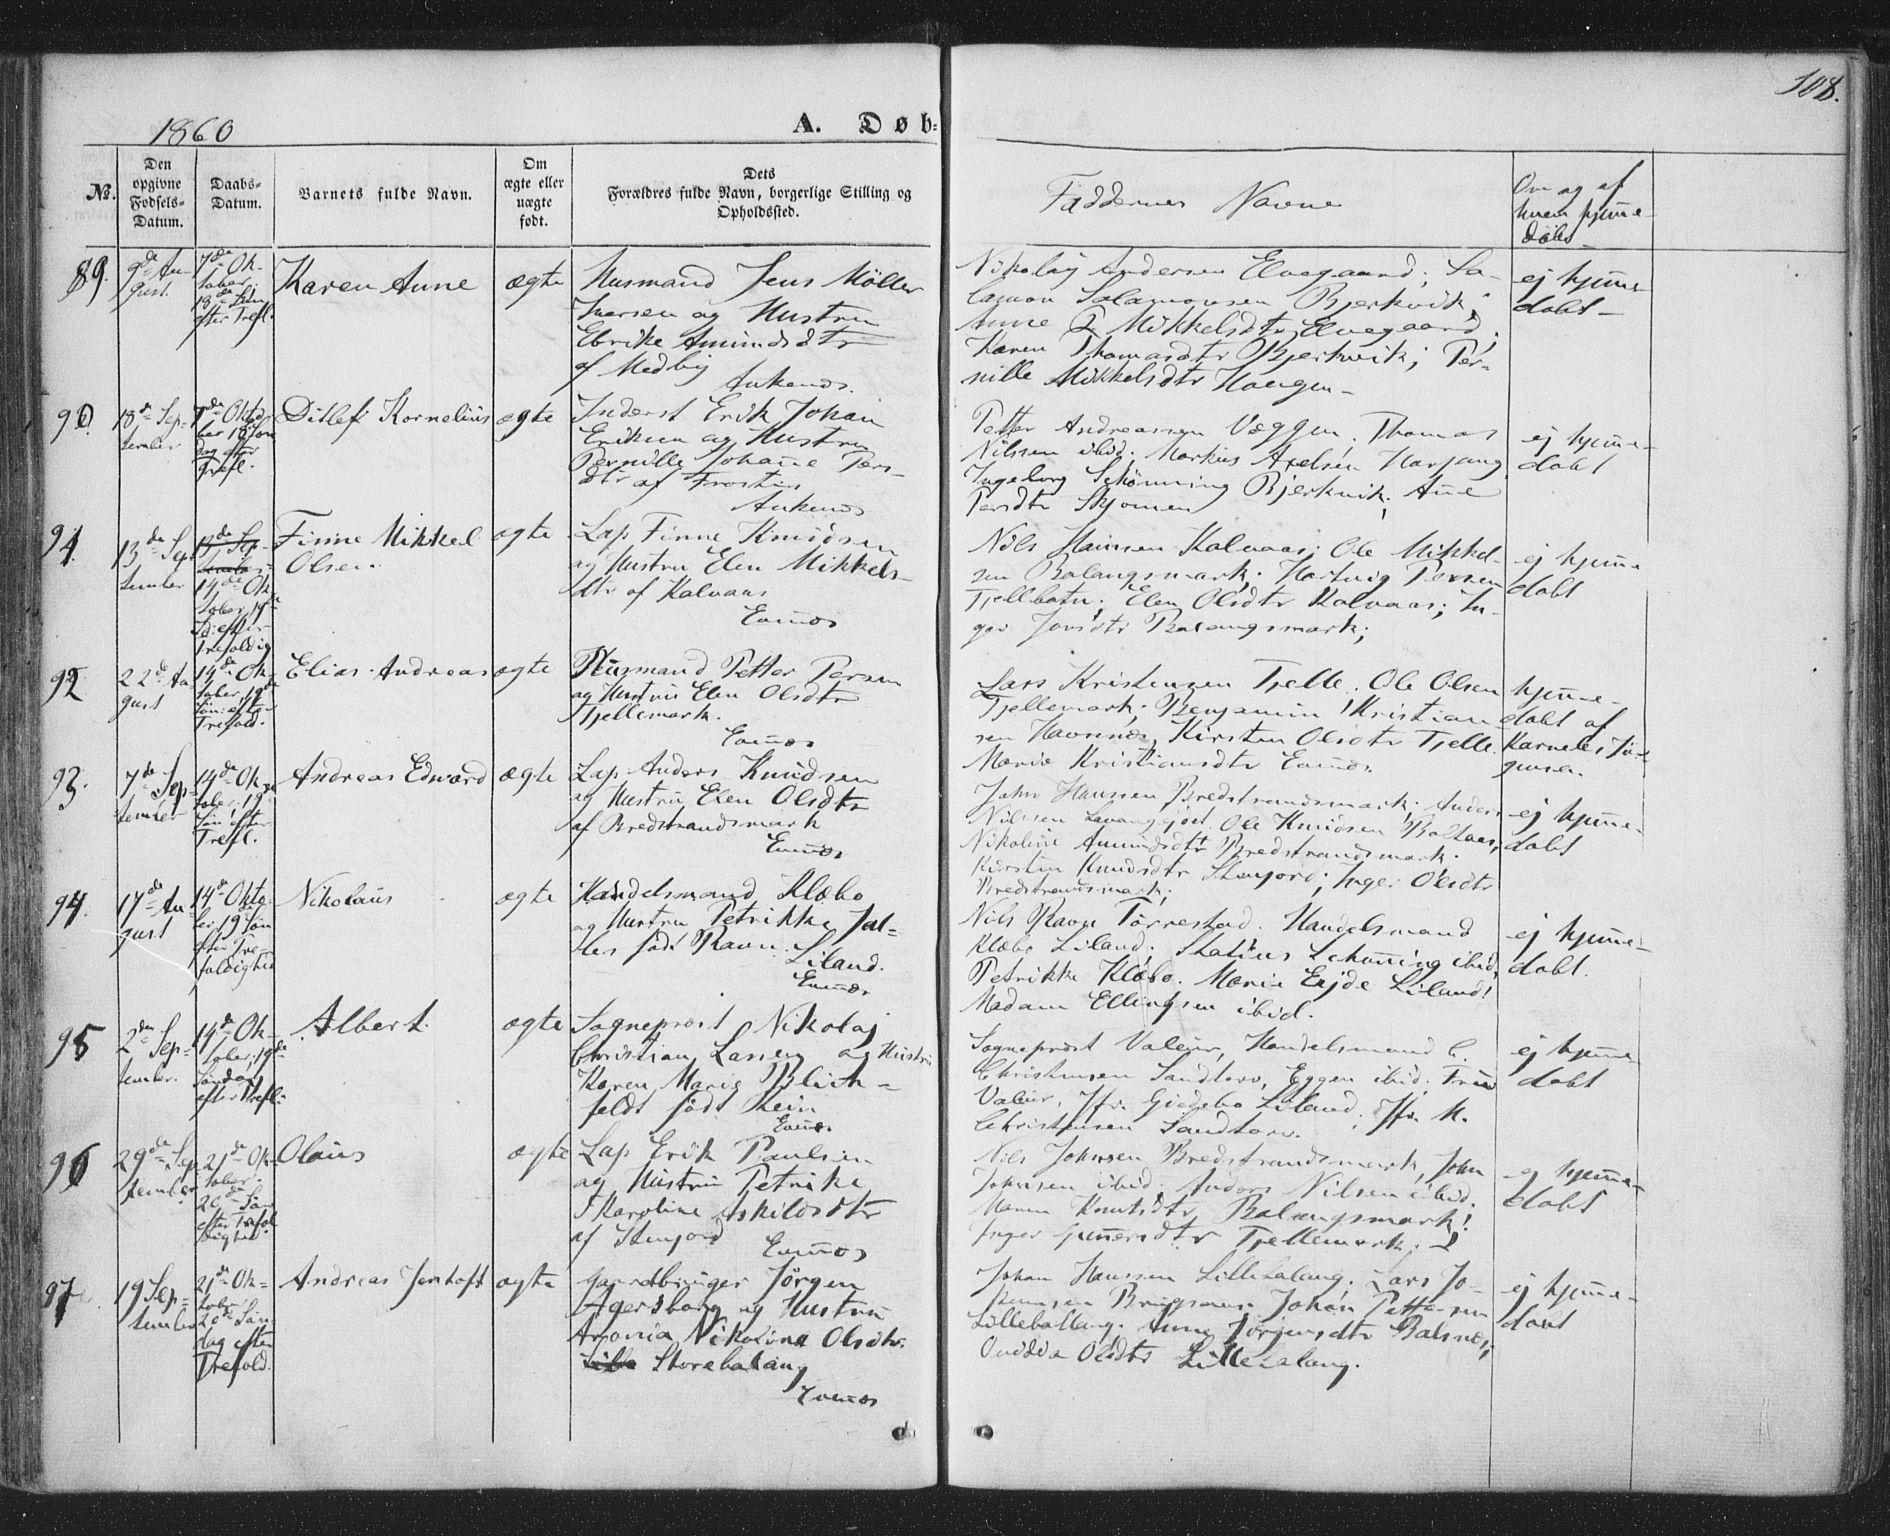 1860
A. Døb=
108.
№.
Den opgivne Fødsels-Datum.
Daabs-Datum.
Barnets fulde Navn.
Om ægte eller uægte født.
Dets Forældres fulde Navn, borgerlige Stilling og Opholdssted.
Faddernes Navne
Om og af hvem hjemme-døbt
89.
9de Au-
gust.
7de Ok-
tober
18de Søn
efter Trefl.
Karen Anne
ægte
Husmand Jens Møller
Iversen og Hustru
af Medby
Ankenes.
Nikolaj Andersen Elvegaard; Sa-
lamon Salamonsen Bjerkvik;
Anne Mikkelsdtr Elvegaard;
Karen Thomasdtr Bjerkvik; Per-
nille Mikkelsdtr Haugen
ej hjemme-
døbt
90.
18de Sep-
tember
7de Okto
ber 18 Søn
dag efter
Trefl.
Ditlef Kornelius
ægte
Inderst Erik Johan
Eriksen og Hustru
Pernille Johanne Pers-
dtr af
Ankenes
Petter Andreassen Væggen; Thomas
Nilssen ibid. Markus Axelsen Harjang
Ingeborg Schønning Bjerkvik; Ane
Persdtr Skjomen
ej hjemme-
døbt
91.
13de Sep
tember
13de Sep-
tember
14de Ok
tober, 19de
efter
Trefoldig
Finne Mikkel
Olsen
ægte
Lap Finne Knudsen
og Hustru Elen Mikkels-
dtr af Kalvaas
Evenes
Nils Hansen Kalvaas; Ole Mikkel-
sen Balangsmark; Hartvig Persen
Elen Olsdtr Kalvaas; In-
ger Balangsmark;
ej hjemme
døbt
92.
22de Au
gust
14de Ok
tober, 19de
Søn: efter
Trefold.
Elias Andreas
ægte
Husmand Petter Persen
og Hustru Elen Olsdtr
Tjellemark.
Evenes
Lars Kristensen Tjelle. Ole Olsen
Tjellemark; Benjamin Kristian
sen Kirsten Olsdtr Tjelle.
Marie Kristiansdtr Evenes.
hjemme-
døbt af
Karneles Jør-
gensen.
93.
7de Sep-
tember
14de Ok
tober, 19de
Søn efter
Trefl.
Andreas Edward
ægte
Lap Anders Knudsen
og Hustru Elen Olsdtr
af Bredstrandsmark
Evenes
John Hanssen Bredstrandsmark; Anders
Nilssen Ole Knudsen
Nikoline Amundsdtr Bredstrandsmark.
Kirsten Knudsdtr Stenjord; Inger Olsdtr
Bredstrandsmark;
ej hjemme-
døbt
94.
17de Au-
gust
14de Okto
ber 19 Søn
efter Tre-
foldighed
Nikolaus
ægte
Handelsmand Klæbo
og Hustru Petrikke Jal-
les født Ravn
Liland.
Evenes
Nils Ravn Tørrestad. Handelsmand
Klæbo Liland; Statius Schønning ibid
Petrikke Klæbo. Marie Liland!
Madam Ellingsen ibid.
ej hjemme-
døbt.
95
2den Sep-
tember.
14de Ok-
tober, 19de
Søndag
efter Trefl.
Albert
ægte
Sogneprest Nikolaj
Christian Lassen og Hustru
Karen Marie Blich-
feldt født Hein
Evenes
Sogneprest Valeur, Handelsmand C.
Christensen Sandtorv, Eggen ibid. Fru
Valeur, Jfr. Giæbo Liland. Jfr. M.
Christensen Sandtorv.
ej hjemme
døbt
96
29de Sep
tember
21de Ok-
tober
20de Søn
efter Trefol
dighed
Olaus
ægte
Lap Erik Paulsen
og Hustru Petrike
Karoline Askildsdtr
af Stenjord
Evenes
Nils Johnsen Bredstrandsmark, John
Johnsen ibid. Anders Nilsen ibid.
Maren Knutsdtr Balangsmark!
Inger Tjellemark.
ej hjemme-
døbt
97
19 Sep-
tember
21de Ok-
tober
20de Søn-
dag efter
Trefold.
Andreas Jentoft
ægte
Gaardbruger Jørgen
Agersborg og Hustru
Antonia Nikolina Olsdtr.
Lille Storebalang
Evenes
Johan Hanssen Lillebalang; Lars Jo-
Johan Pettersen
Lilleballang. Anne Jørgensdtr Balsnes;
Olsdtr Lillebalang.
ej hjemme-
døbt